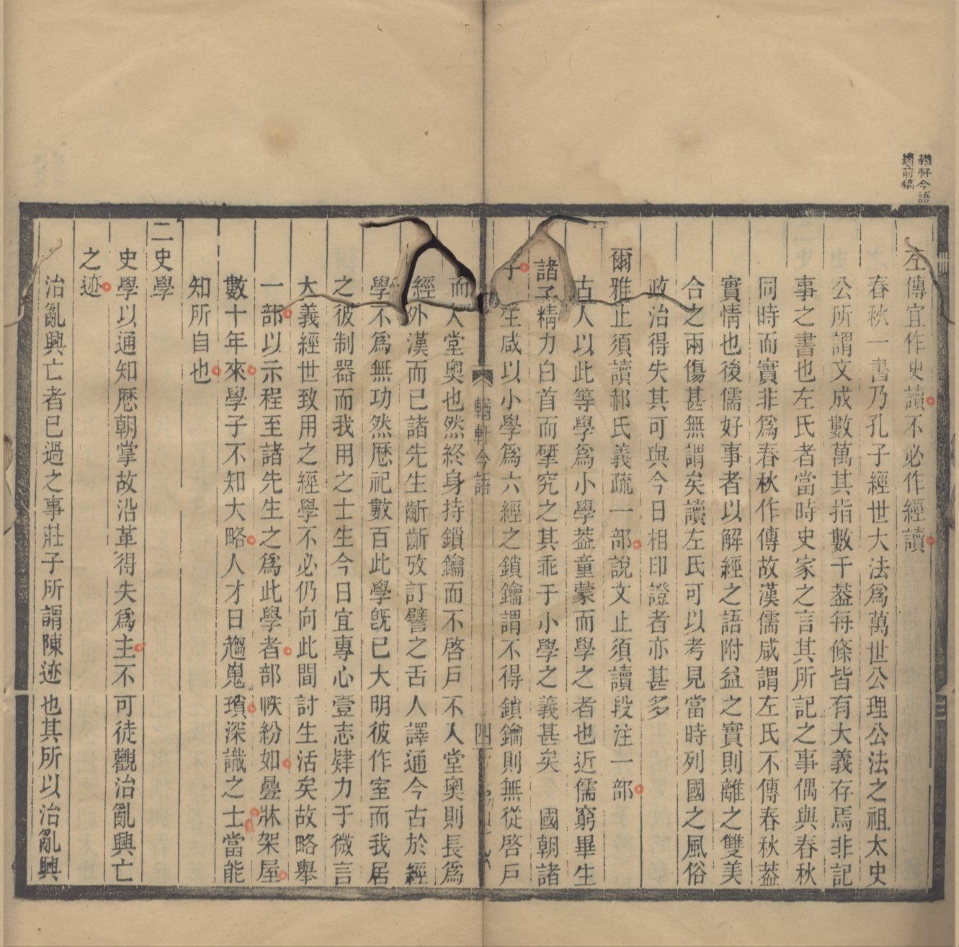 輶軒今語
續前稿
左傳宜作史讀不必作經讀
春秋一書乃孔子經世大法為萬世公理公法之祖太史
公所謂文成數萬其指數千葢每條皆有大義存焉非記
事之書也左氏者當時史家之言其所記之事偶與春秋
同時而實非為春秋作傳故漢儒咸謂左氏不傳春秋葢
實情也後儒好事者以解經之語附益之實則離之雙美
合之兩傷甚無謂矣讀左氏可以考見當時列國之風俗
政治得失其可與今日相印證者亦甚多
爾雅止須讀郝氏義疏一部說文止須讀段注一部
古人以此等學為小學葢童蒙而學之者也近儒窮畢生
精力白首而肄究之其乖于小學之義甚矣 國朝諸
咸以小學為六經之鎖鑰謂不得鎖鑰則無從啓戶
輶軒今語
四
而入堂奧也然終身持鎖鑰而不啓戶不入堂奧則長為
經外漢而已諸先生齗齗攷訂譬之舌人譯通今古於經
學不為無功然厯祀數百此學旣已大明彼作室而我居
之彼制器而我用之士生今日宜專心壹志肄力于微言
大義經世致用之經學不必仍向此間討生活矣故略舉
一部以示程至諸先生之為此學者部帙紛如疊牀架屋
數十年來學子不知大略人才日趨嵬瑣深識之士當能
知所自也
二史學
史學以通知厯朝掌故沿革得失為主不可徒觀治亂興亡
之迹
治亂興亡者已過之事莊子所謂陳迹也其所以治亂興